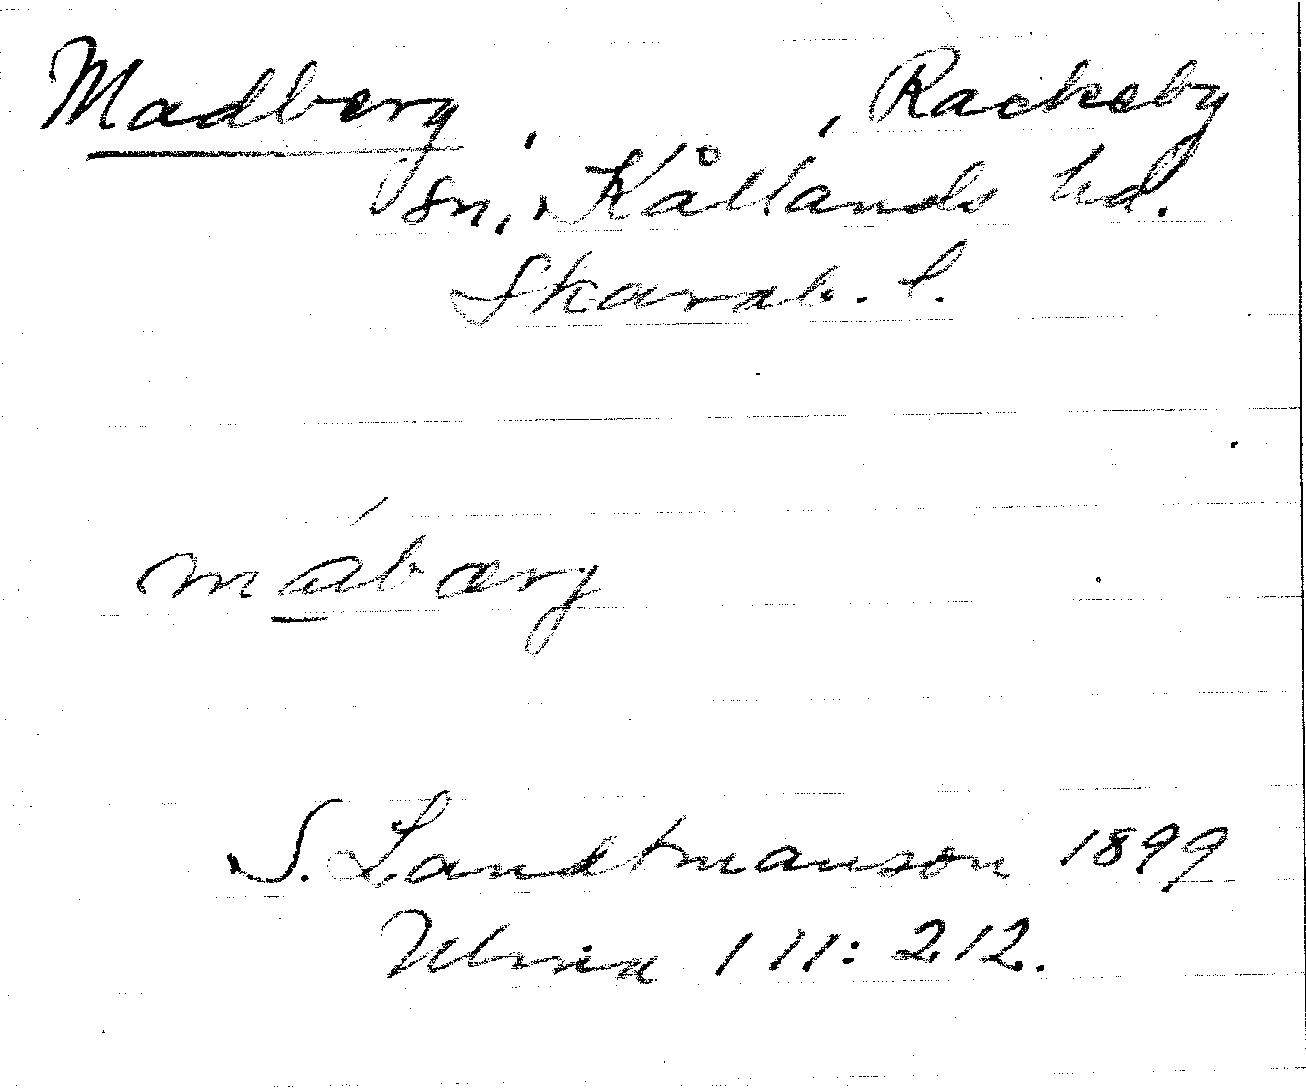 Madberg, , Rackeby
sn., Kållands hd.
Skarab. l.
mábærg
S. Landtmanson 1899
111: 212.